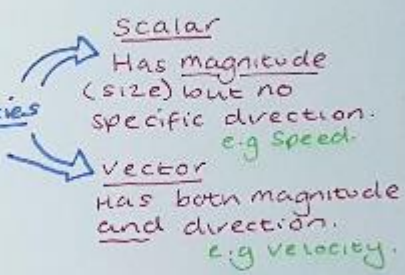 Scalar
Has magnitude
(size) but no
ies
specific direction.
e.g Speed.
Vector
Has both magnitude
and direction.
e.g velocity.